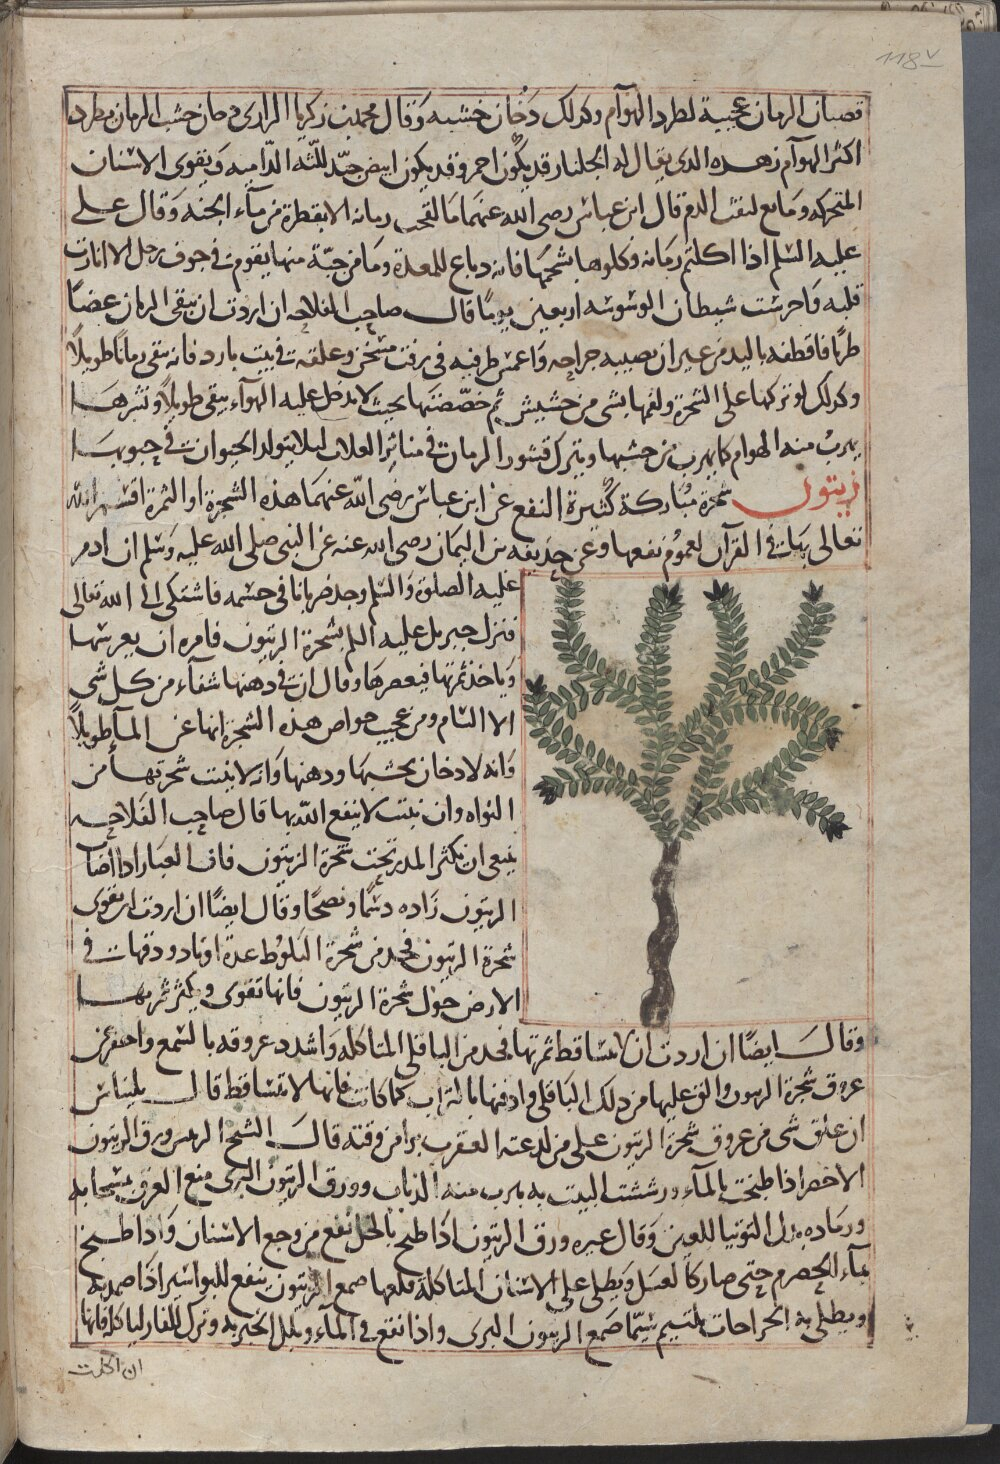 118v
قضبان الرمان عجيبة لطرد الهوآم وكدلك دخان خشبه وقال محمد بن زكريا الرازى دخان خشب الرمان يطرد
اكثر الهوآم زهره الدى يقال له الجلنار قد يكون احمر وقد يكون ابيض جيد للثه الداميه ويقوى الاسنان
المتحركه ومانع لنفث الدم قال ابن عباس رضى الله عنهما ما لقحت رمانه الا بقطرة من مآء الجنه وقال على
عليه السلم اذا اكلتم رمانه فكلوها بشحمها فانه دباغ للمعدة وما من حبّة منها يقوم فى جوف رجل الا انارت
قلبه واخرست شيطان الوسوسه اربعين يوما قال صاحب الفلاحه ان اردت ان يبقى الرمان غضا
طريا فاقطفه باليد من غير ان يصيبه جراحه واغمس طرفيه فى زفت مسخن وعلقه فى بيت بارد فانه يبقى زمانا طويلا
وكدلك لو تركها على الشجرة ولفها بشى من حشيش ثم خصصتها بحيث لا يدخل عليه الهوآء يبقى طويلا وقشرها
يهرب منه الهوام كما يهرب من خشبها ويترك قشور الرمان فى الغلات ليلا يتولد الحيوانات فى حبوبها
زيتون شجرة مباركة كثيرة النفع عن ابن عباس رضى الله عنهما هذه الشجرة او الثمرة اقسم الله
تعالى بها فى القرآن لعموم نفعها وعن حذيفه بن اليمان رضى الله عنه عن النبى صلى الله عليه وسلم ان ادم
عليه الصلوة والسلم وجد ضربانا فى جسمه فاشتكى الى الله تعالى
فنزل جبريل عليه السلم بشجرة الزيتون فامره ان يغرسها
وياخذ ثمرتها فيعصرها وقال ان فى دهنها شفآء من كل شى
الا السام ومن عجيب خواص هذه الشجرة انها عن المآء طويلا
وانه لا دخان لخشبها ودهنها وانه لا ينبت شجرتها من
النواه وان نبتت لا ينفع الله بها قال صاحب الفلاحه
ينبغى ان يكثر المدر تحت شجرة الزيتون فان الغبار اذا اصاب
الزيتون زاده دسما ونضجا وقال ايضا ان اردت ان تقوى
شجرة الزيتون فخد من شجرة البلوط عدة اوتاد ودقهات فى
الارض حول شجرة الزيتون فانها تقوى ويكثر ثمرتها
وقال ايضا ان اردت ان لا يتساقط ثمرتها فخد من الباقلى المتاكله واشدد عروقه بالشمع واحفر عن
عروق شجرة الزيتون والق عليها من دلك الباقلى وادفنها بالتراب كما كانت فانها لا تتساقط قال بليناس
ان علق شى من عروق شجرة الزيتون على من لدغته العقرب برا من وقته قال الشيخ الرئيس ورق الزيتون
الاخضر اذا طبخت بالمآء ورششت البيت به يهرب منه الذباب وورق الزيتون البرى منع العرق مسحا به
ورماده بدل التوتيا للعين وقال غيره ورق الزيتون اذا طبخ بالخل نفع من وجع الاسنان واذا طبخ
بمآء الحصرم حتى صار كالعسل ويطلى على الاسنان المتاكلة قلعها صمغ الزيتون ينفع للبواسير اذا ضمد به
ويطلى به الجراحات يلتئم سيما صمغ الزيتون البرى واذا نقع فى المآء وبلل الخبز به وترك للفار ليا كله فانها
ان اكلت